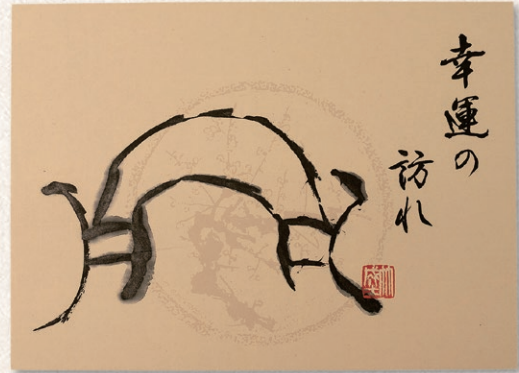 幸運の
訪れ